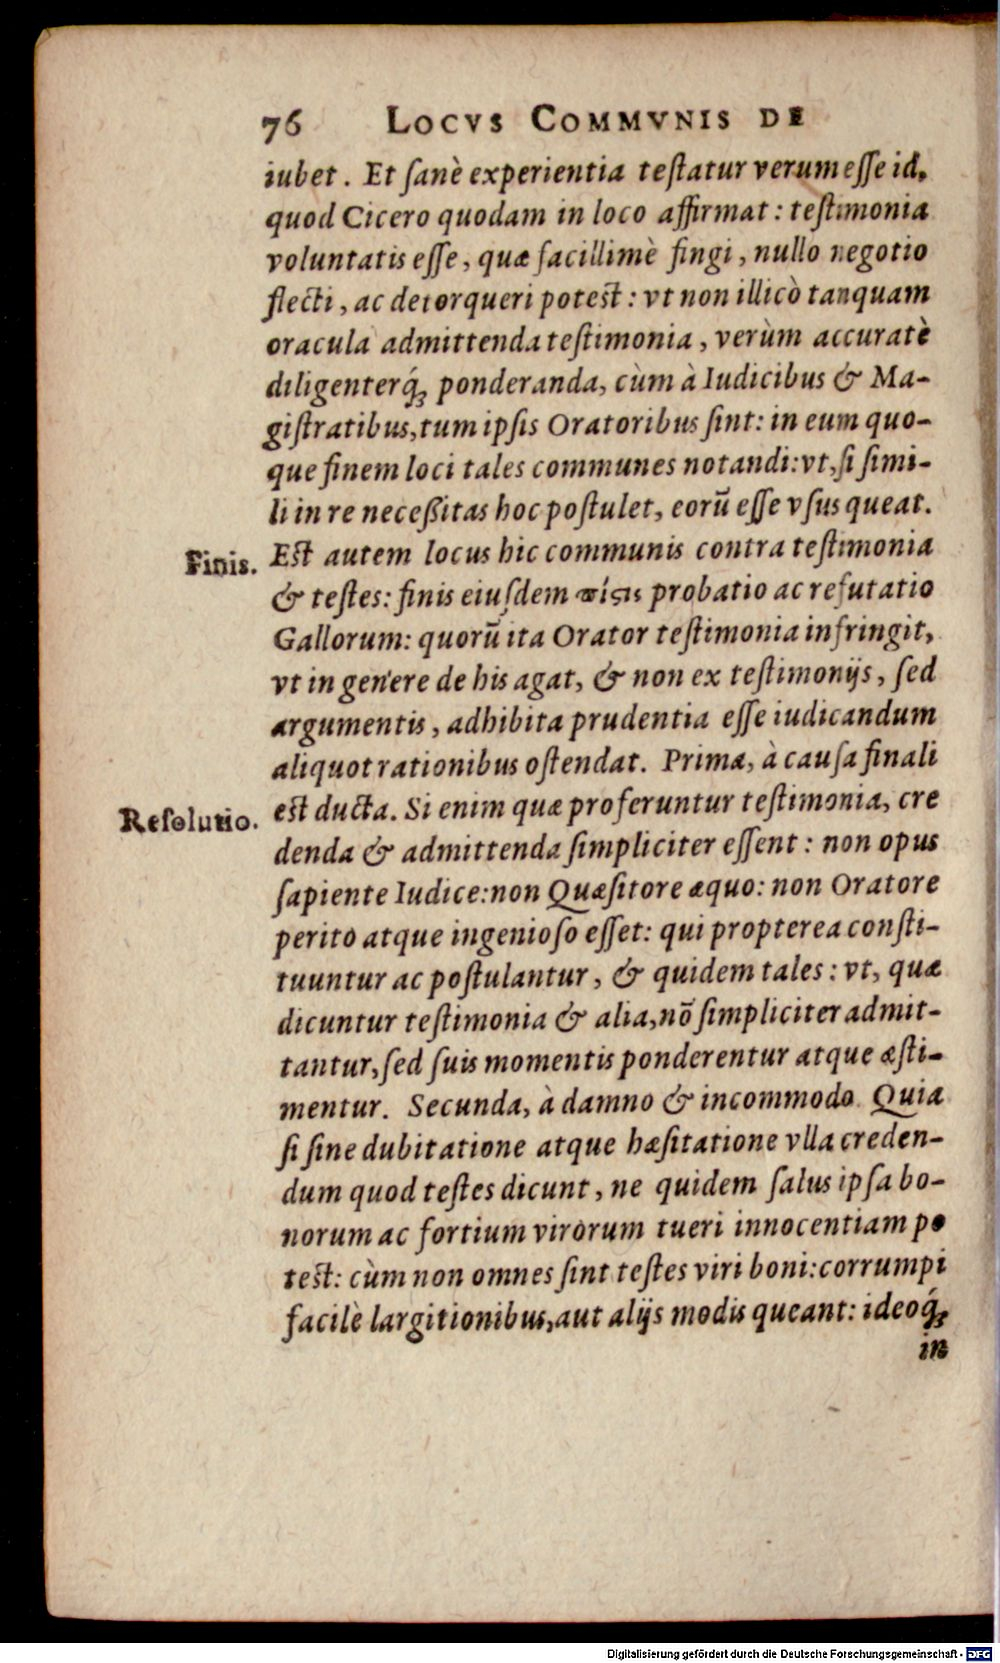 76 LOCVS COMMVNIS DE
iubet. Et ſanè experientia teſtatur verum eſſe id,
quod Cicero quodam in loco affirmat: teſtimonia
voluntatis eſſe, quæ facillimè fingi, nullo negotio
flecti, ac detorqueri poteſt: vt non illicò tanquam
oracula admittenda teſtimonia, verùm accuratè
diligenterq́ꝫ ponderanda, cùm à Iudicibus & Ma-
giſtratibus, tum ipſis Oratoribus ſint: in eum quo-
que finem loci tales communes notandi: vt, ſi ſimi-
li in re neceßitas hoc poſtulet, eorũ eſſe vſus queat.
Finis. Eſt autem locus hic communis contra teſtimonia
& teſtes: finis eiuſdem πίϛις probatio ac refutatio
Gallorum: quorũ ita Orator teſtimonia infringit,
vt in genere de his agat, & non ex teſtimonijs, ſed
argumentis, adhibita prudentia eſſe iudicandum
aliquot rationibus oſtendat. Prima, à cauſa finali
Reſolutio. eſt ducta. Si enim quæ proferuntur teſtimonia, cre
denda & admittenda ſimpliciter eſſent: non opus
ſapiente Iudice: non Quæſitore æquo: non Oratore
perito atque ingenioſo eſſet: qui propterea conſti-
tuuntur ac poſtulantur, & quidem tales: vt, quæ
dicuntur teſtimonia & alia, nõ ſimpliciter admit-
tantur, ſed ſuis momentis ponderentur atque æſti-
mentur. Secunda, à damno & incommodo. Quia
ſi ſine dubitatione atque hæſitatione vlla creden-
dum quod teſtes dicunt, ne quidem ſalus ipſa bo-
norum ac fortium virorum tueri innocentiam po
teſt: cùm non omnes ſint teſtes viri boni: corrumpi
facilè largitionibus, aut alijs modis queant: ideoq́ꝫ
in
Digitalisierung gefördert durch die Deutsche Forschungsgemeinschaft - DFG